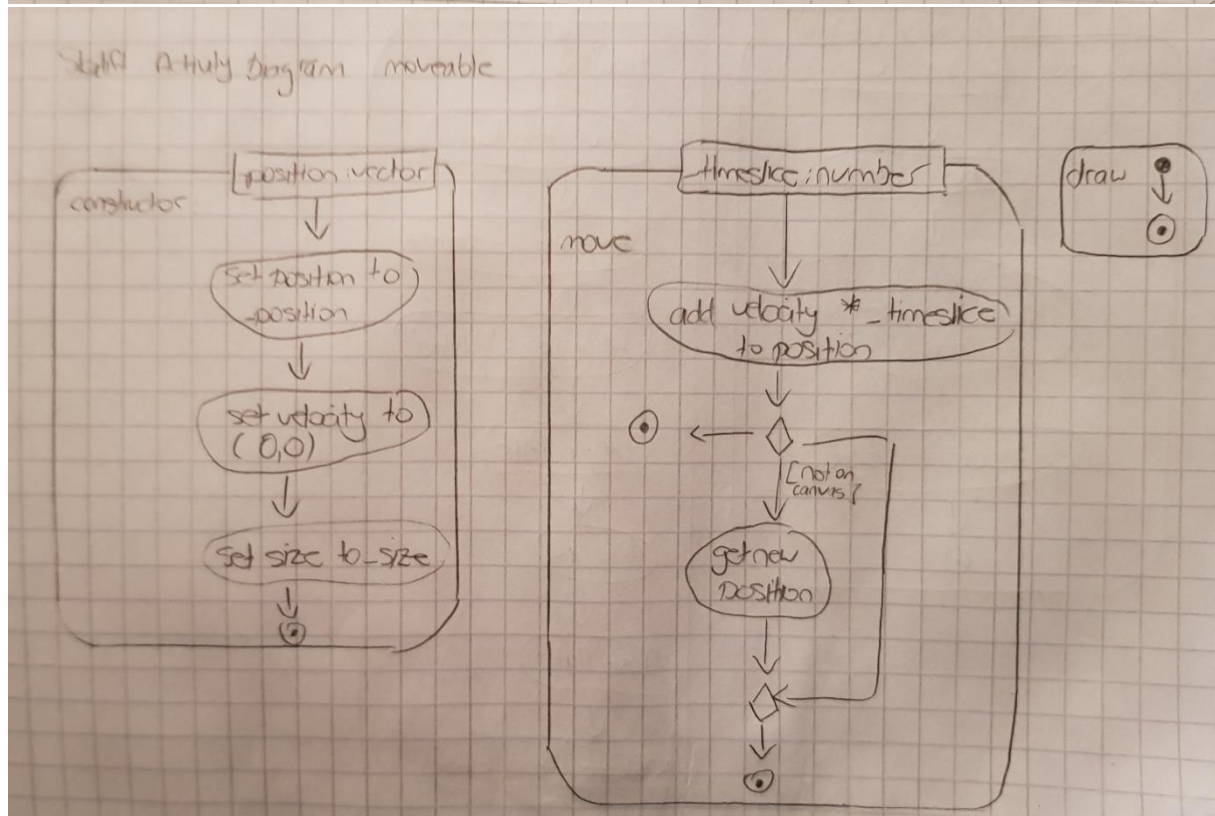 Activity Diagram moveable
position:vector
constructor
set position to
_position
set velocity to
(0,0)
set size to _size
timeslice:number
move
add velocity * _timeslice
to position
[not on
canvas]
get new
position
draw